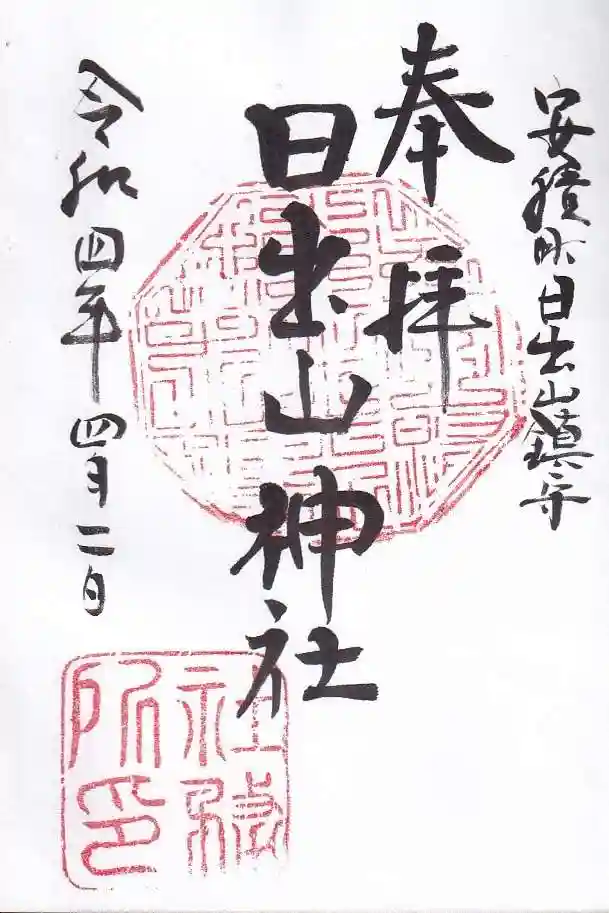 安積町日出山鎮守
奉拝
日出山神社
令和四年四月二日
社務所印